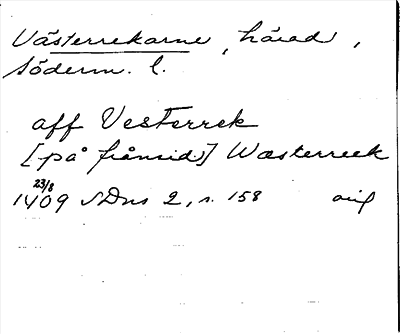 Västerrekarne, härad,
Söderm. l.
aff Vesterrek
[på frånsid] Wæsterreek
23/8
1409 SDns 2, s. 158 orig